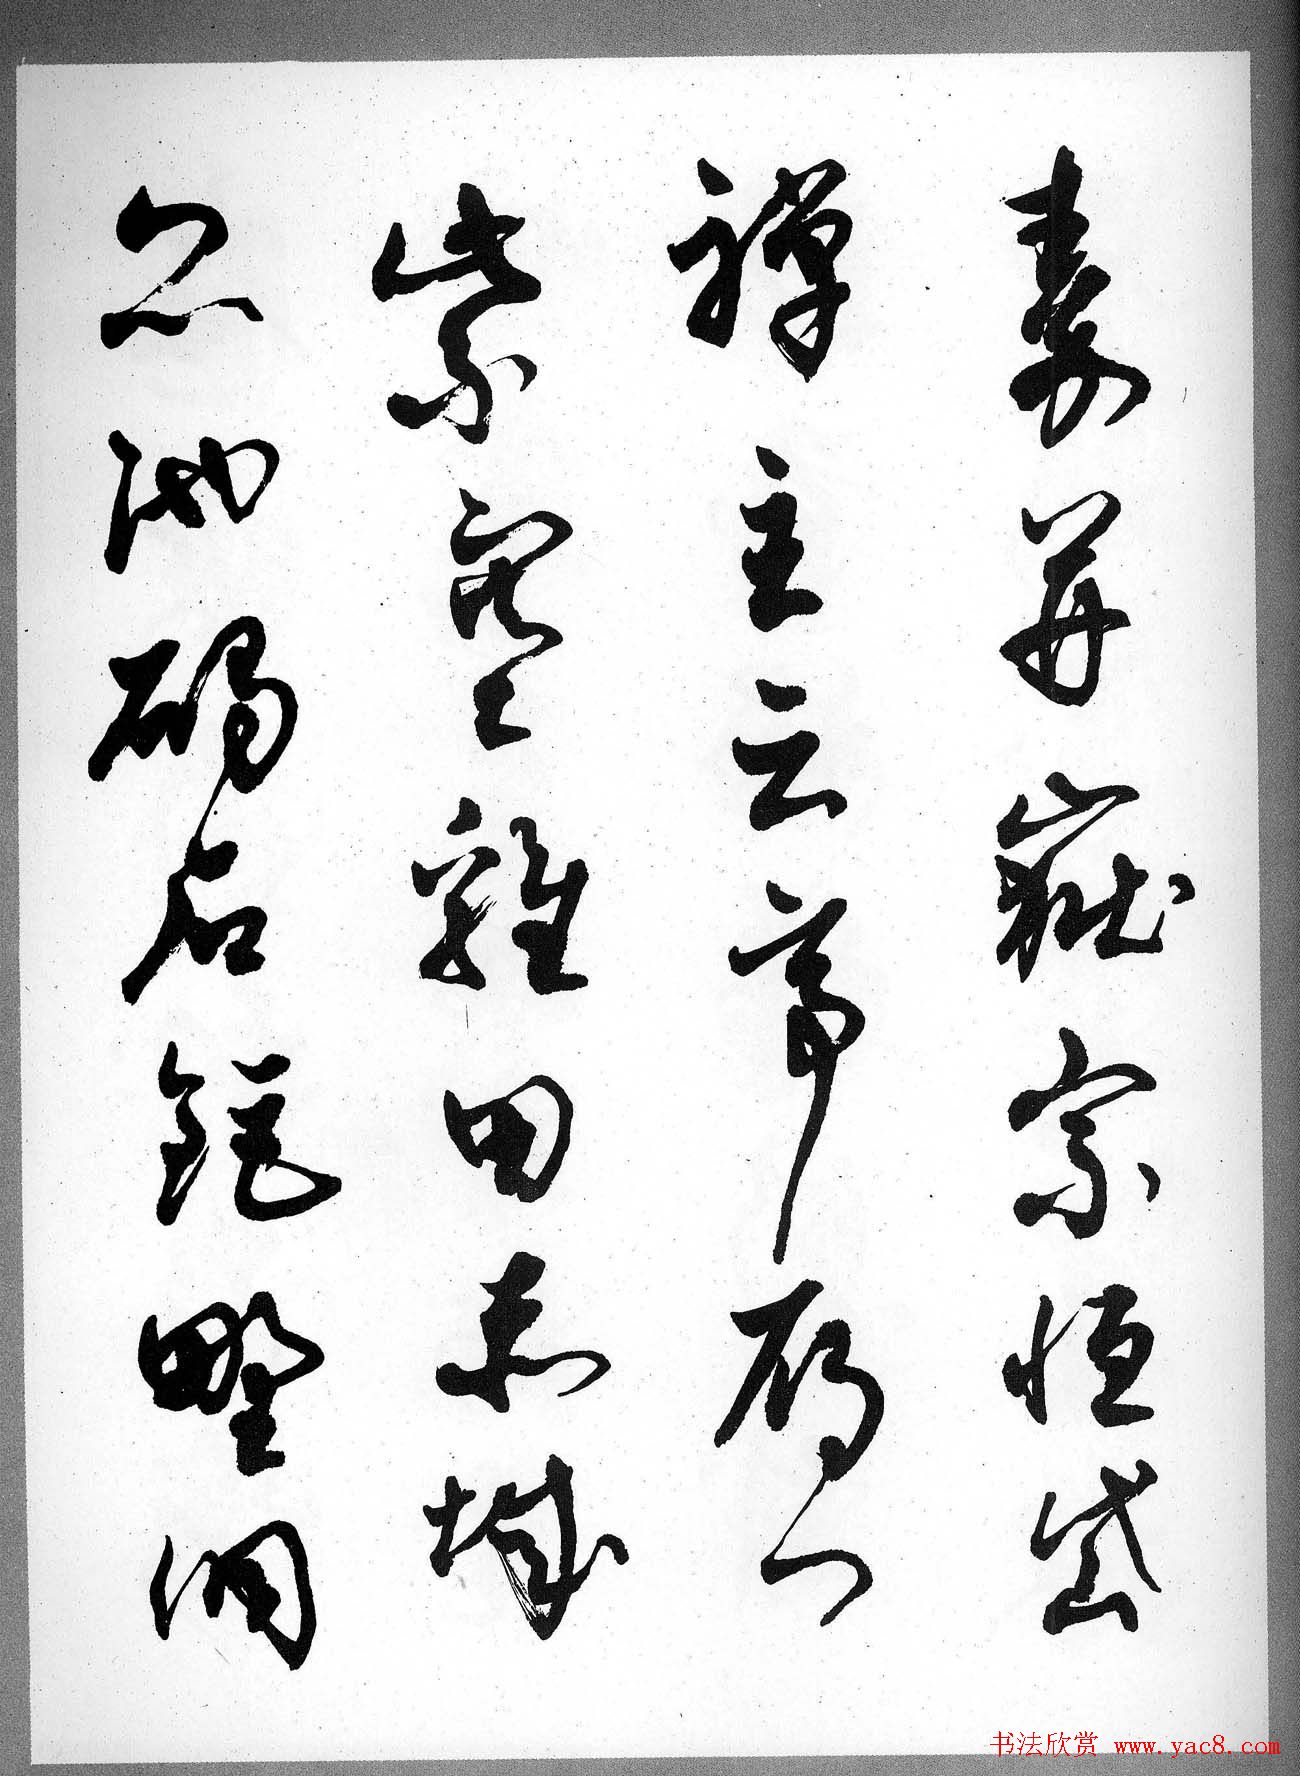 秦并嶽宗恒岱
禪主云亭雁門
紫塞雞田赤城
昆池碣石鉅野洞
书法欣赏 www.yac8.com